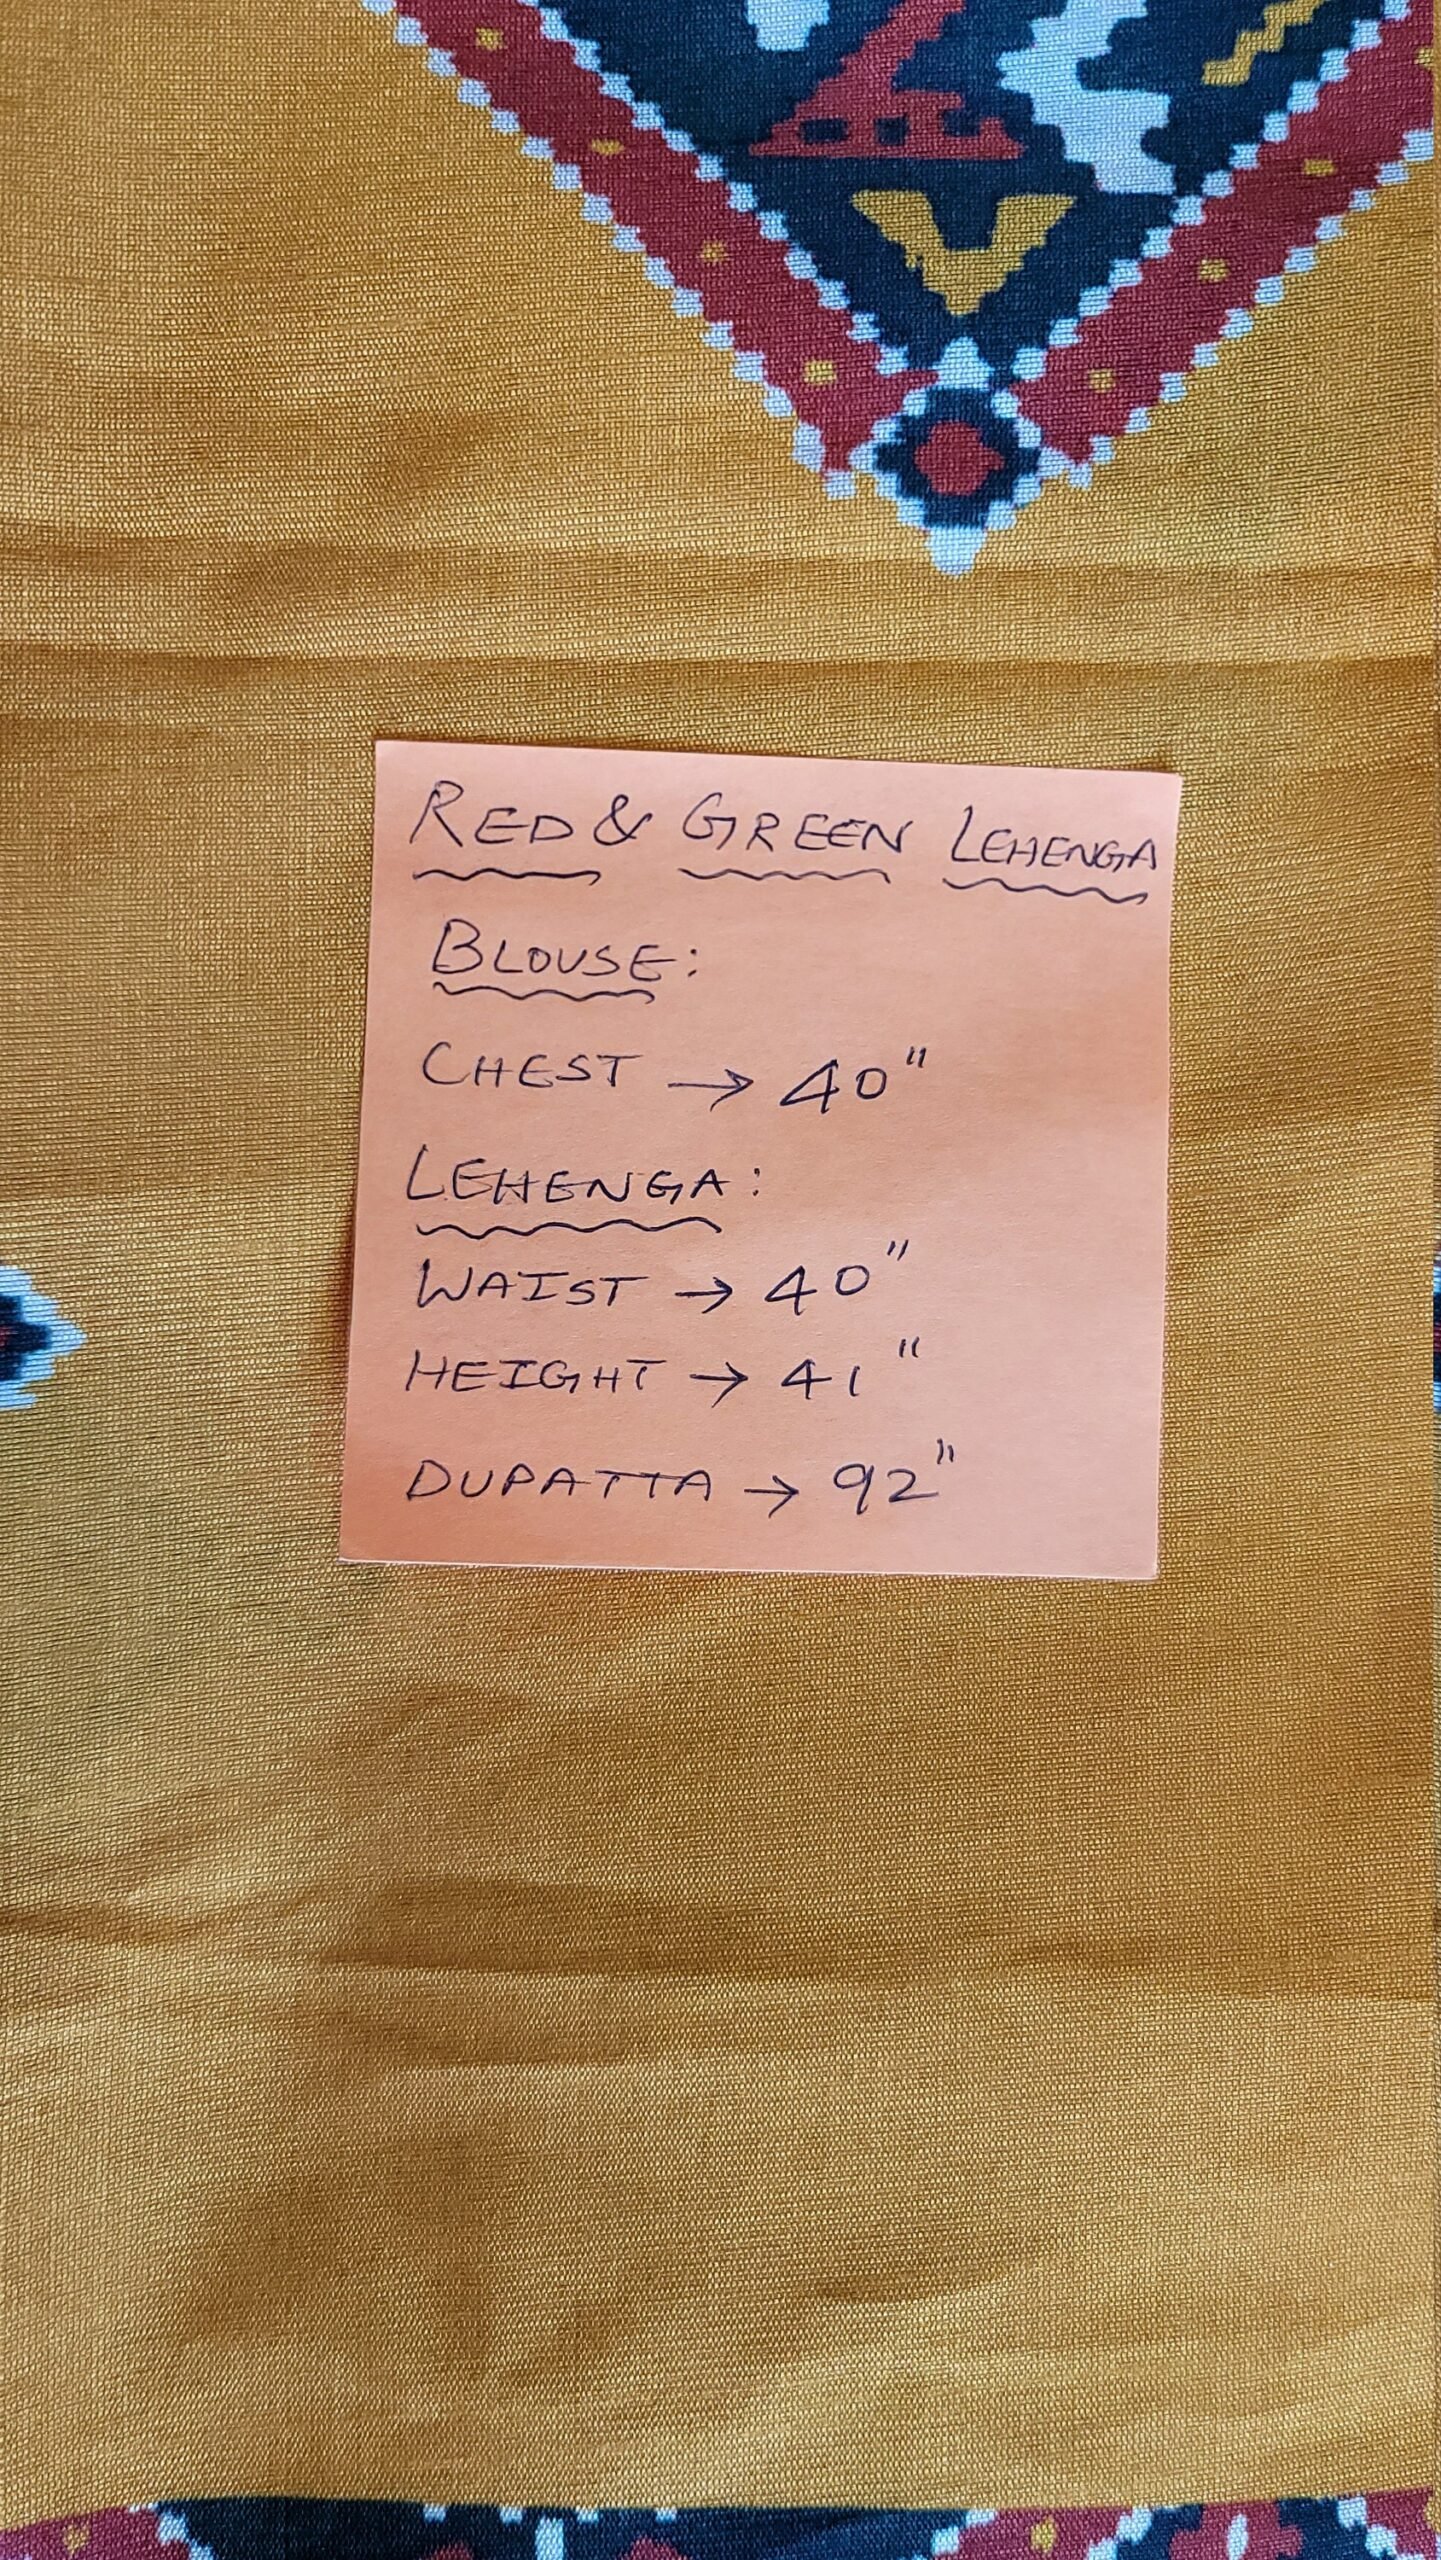 RED & GREEN LEHENGA
BLOUSE:
CHEST → 40"
LEHENGA:
WAIST → 40"
HEIGHT → 41"
DUPATTA → 92"